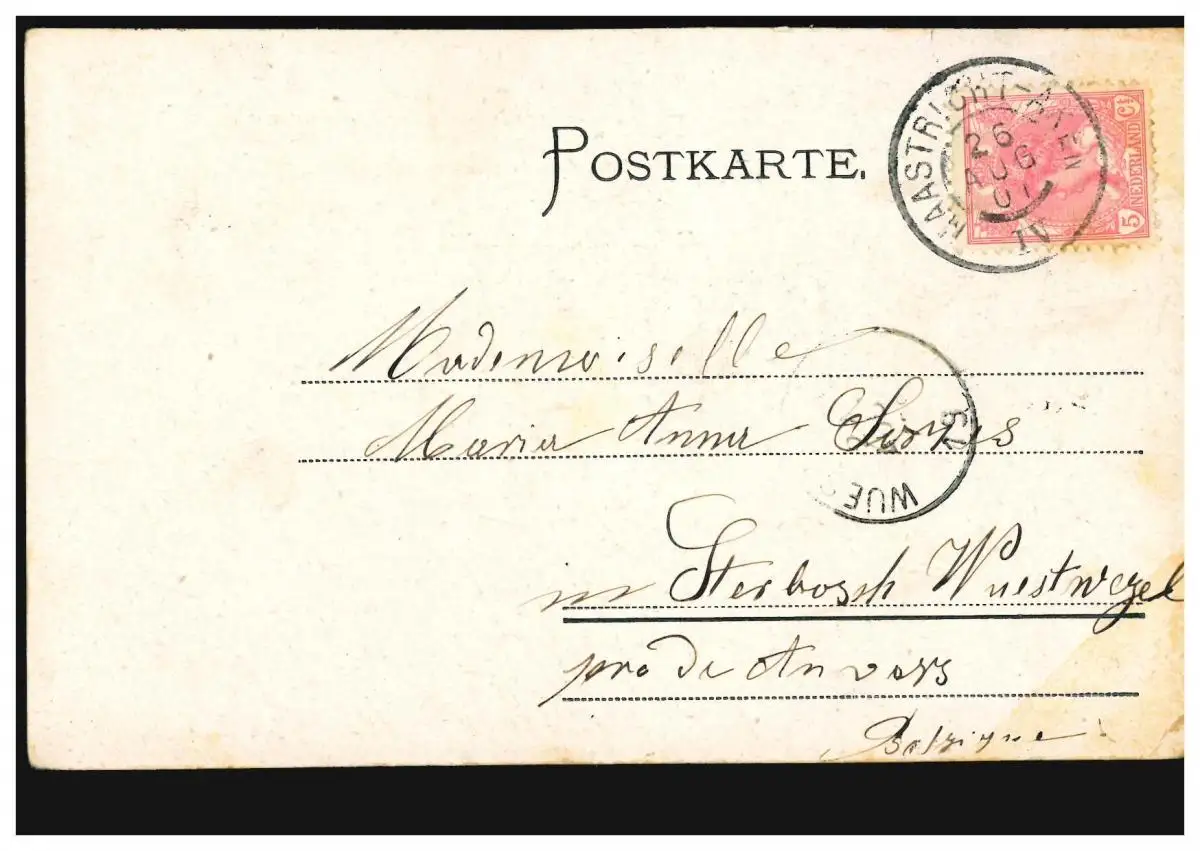 POSTKARTE.
MAASTRICHT-AKEN
26
AUG
01
IV
5 NEDERLAND Ct
Mademoiselle
Maria Anna
WUE
Sterbosch Wuestwezel
pro de Anvers
Belgique